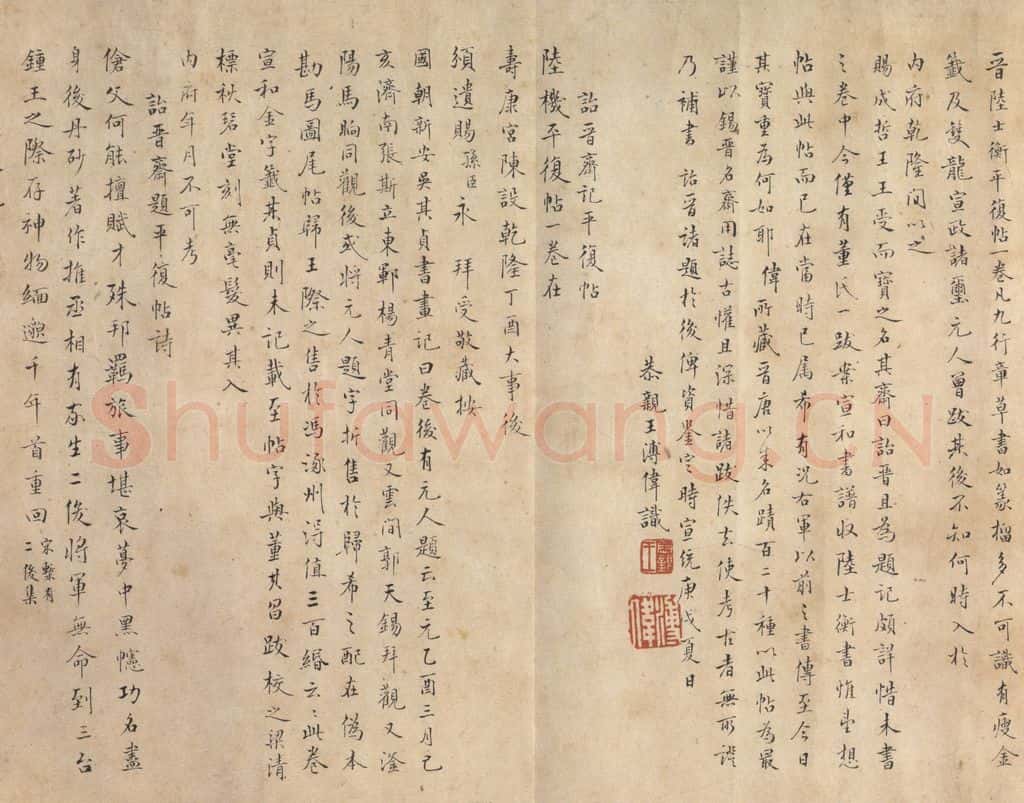 晉陸士衡平復帖一卷凡九行章草書如篆籀多不可識有瘦金
籤及雙龍宣政諸璽元人曾跋其後不知何時入於
內府乾隆間以之
賜成哲王王受而寶之名其齋曰詒晉且為題記頗詳惜未書
之卷中今僅有董氏一跋案宣和書譜收陸士衡書惟
帖與此帖而已在當時已屬希有況右軍以前之書傳至今日
其寶重為何如耶偉所藏晉唐以來名蹟百二十種以此帖為最
謹以錫晉名齋用誌古懽且深惜諸跋佚去使考古者無所證
乃補書詒晉諸題於後俾資鑒定時宣統庚戌夏日
恭親王溥偉識
詒晉齋記平復帖
陸機平復帖一卷在
壽康宮陳設乾隆丁酉大事後
頒遺賜孫臣永 拜受敬藏按
國朝新安吳其貞書畫記曰卷後有元人題云至元乙酉三月己
亥濟南張斯立東鄆楊青堂同觀又雲間郭天錫拜觀又滏
陽馬昫同觀後或將元人題字折售於歸希之配在偽本
勘馬圖尾帖歸王際之售於馮涿州得值三百緡云〻此卷
宣和金字籤其貞則未記載至帖字與董其昌跋校之梁清
標秋碧堂刻無毫髮異其入
內府年月不可考
詒晉齋題平復帖詩
傖父何能擅賦才殊邦羈旅事堪哀夢中黑幰功名盡
身後丹砂著作推丞相有孫生二俊將軍無命到三台
鍾王之際存神物緬邈千年首重回宋槧有二俊集
Shufawang.CN